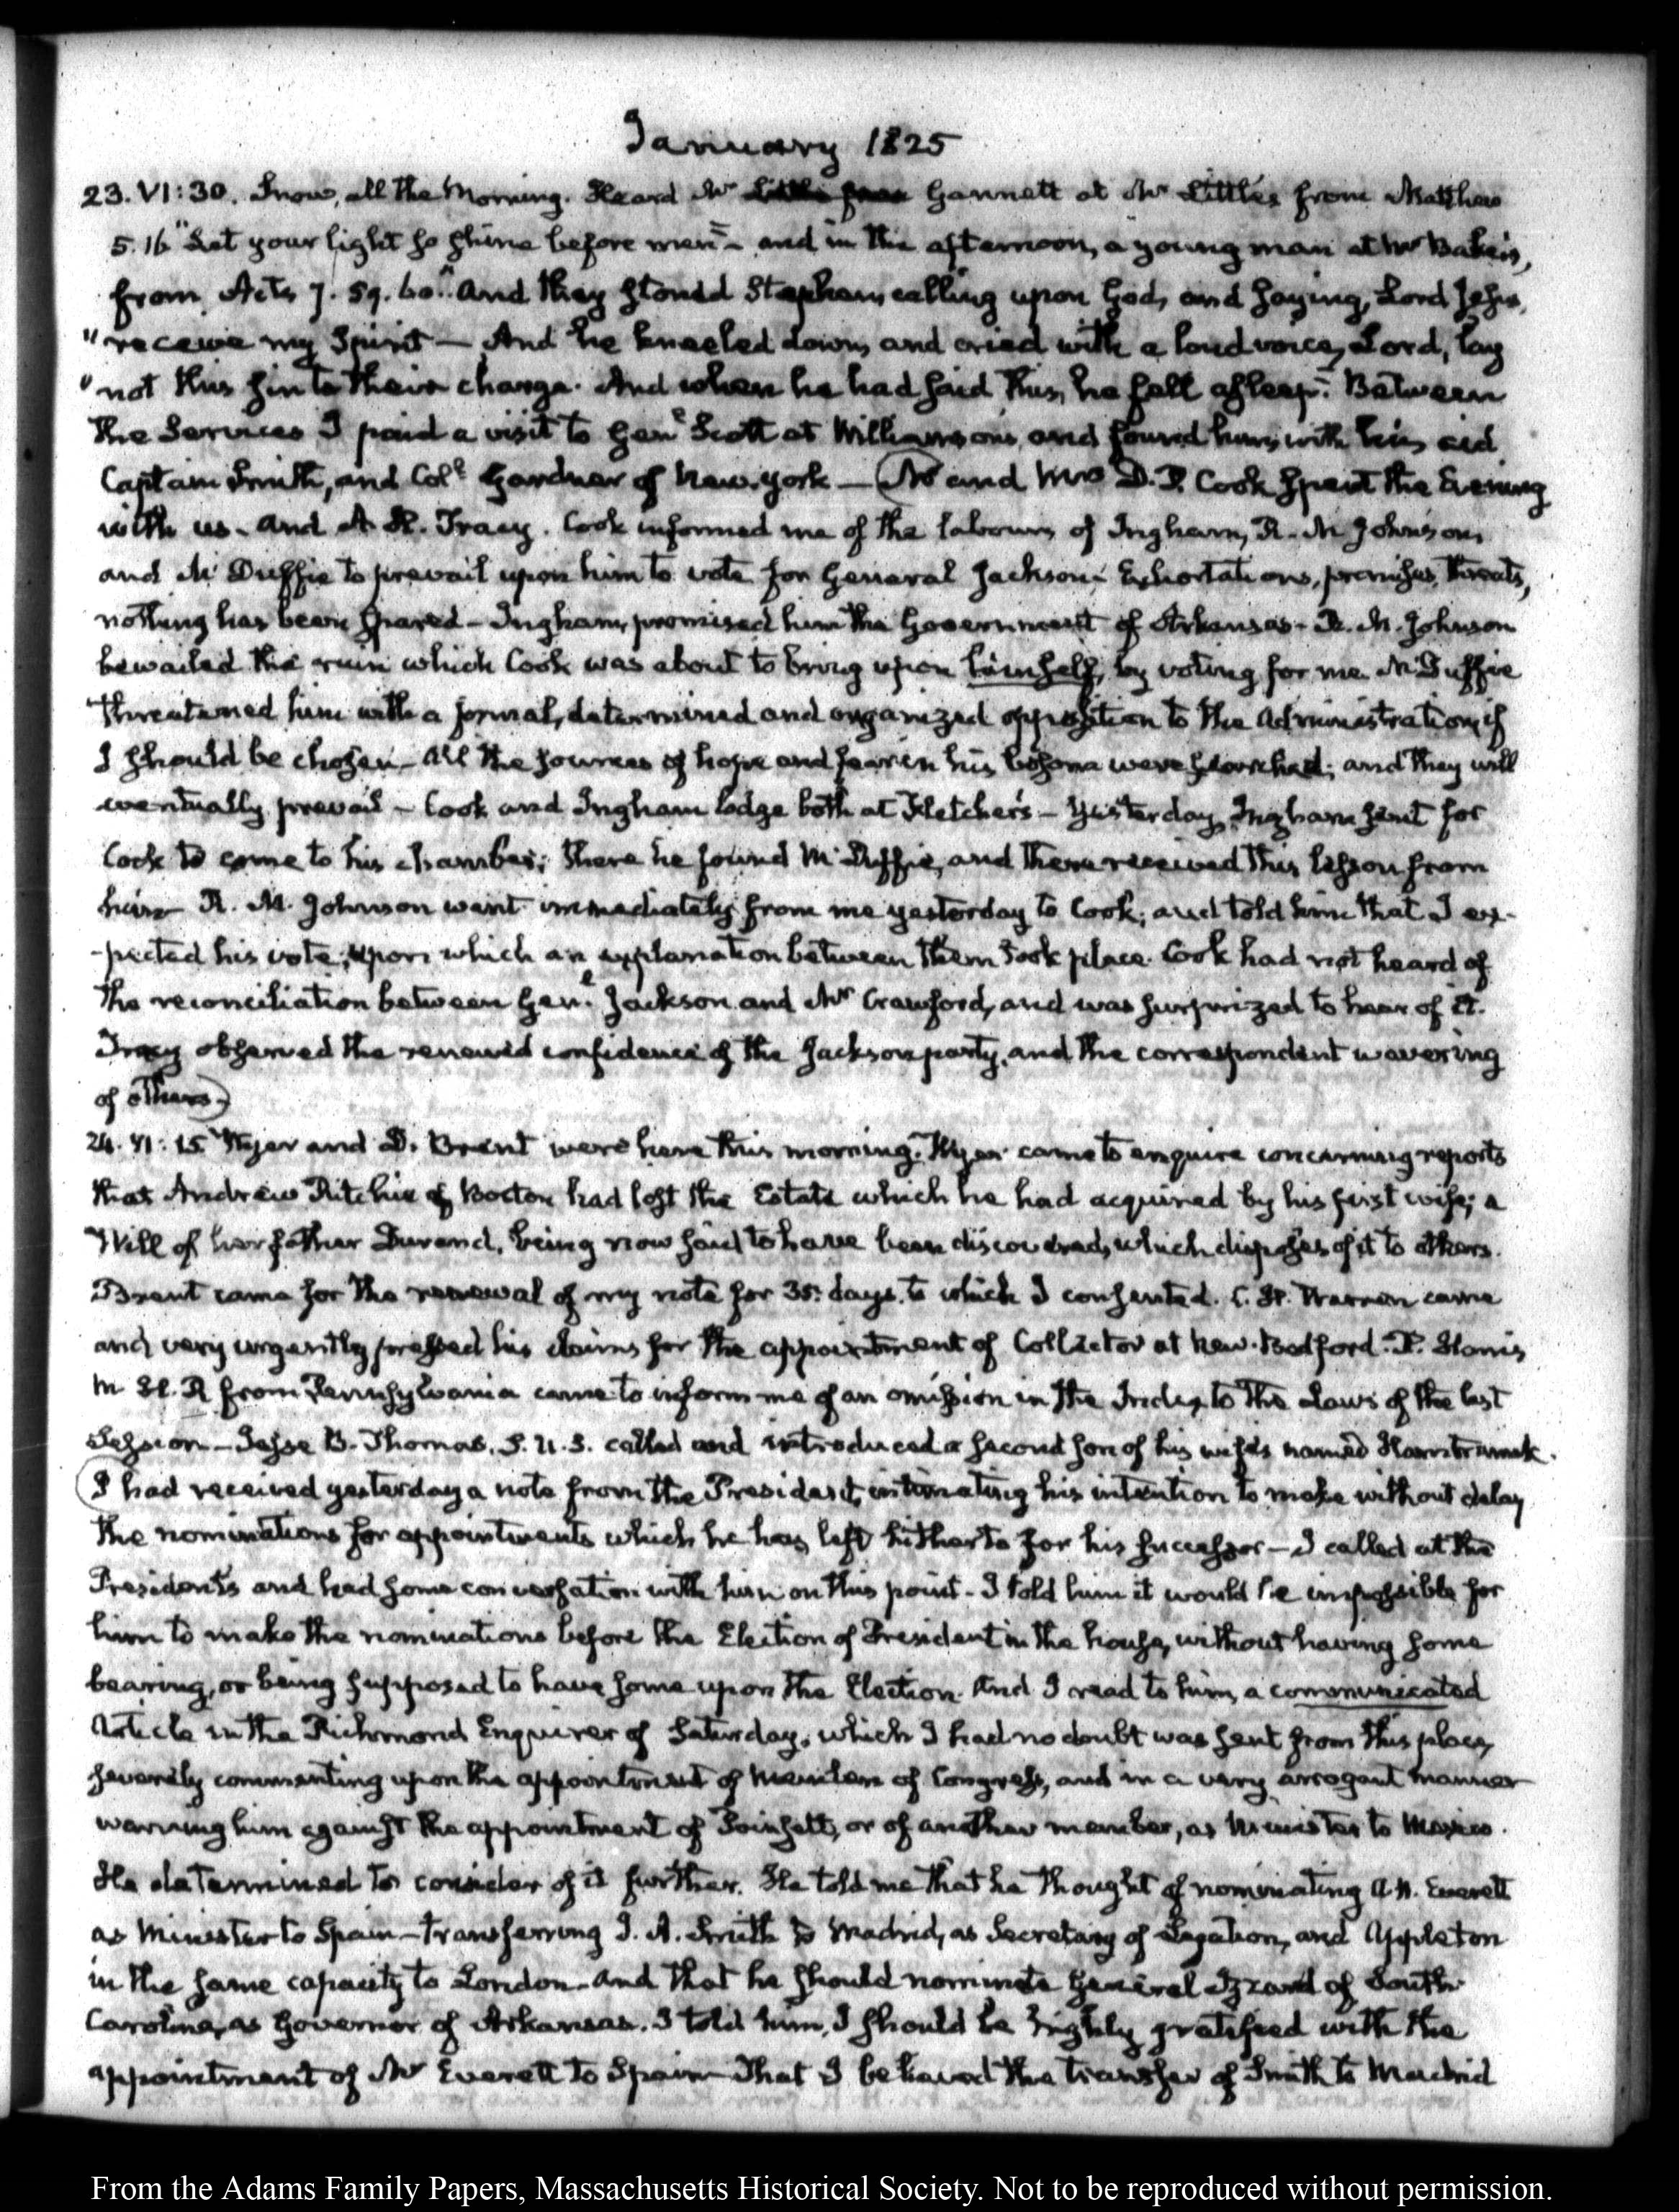 January 1825
23. VI:30. Snow, all the Morning. Heard Mr Gannett at Mr Little's from Matthew
5.16 "Let your light so shine before men"- and in the afternoon, a young man at Mr Baker's,
from Acts 7. 59. 60. "And they stoned Stephen, calling upon God, and saying, Lord Jesus,
"receive my Spirit — And he kneeled down, and cried with a loud voice, Lord, lay
"not this sin to their charge. And when he had said this, he fell asleep." Between
the Services I paid a visit to Genl Scott at Williamson's, and found him with his aid
Captain Smith, and Coll Gardner of New-York — (Mr and Mrs D. P. Cook spent the Evening
with us- and A. H. Tracy. Cook informed me of the labours of Ingham, R. M. Johnson,
and McDuffie to prevail upon him to vote for General Jackson- Exhortations, promises, threats,
nothing has been spared- Ingham promised him the Government of Arkansas- R. M. Johnson
bewailed the ruin which Cook was about to bring upon himself, by voting for me. McDuffie
threatened him with a formal, determined and organized opposition to the Administration, if
I should be chosen- All the sources of hope and fear in his bosom were searched; and they will
eventually prevail- Cook and Ingham lodge both at Fletcher's- Yesterday, Ingham sent for
Cook to come to his chamber; there he found McDuffie, and there received this lesson from
him- R. M. Johnson went immediately from me yesterday to Cook; and told him that I ex-
-pected his vote; upon which an explanation between them took place. Cook had not heard of
the reconciliation between Genl Jackson and Mr Crawford, and was surprized to hear of it.
Tracy observed the renewed confidence of the Jackson party, and the correspondent wavering
of others.)
24. VI:15. Wyer and D. Brent were here this morning. Wyer came to enquire concerning reports
that Andrew Ritchie of Boston had lost the Estate which he had acquired by his first wife; a
Will of her father Durand, being now said to have been discovered, which disposes of it to others.
Brent came for the renewal of my note for 35. days, to which I consented. C. H. Warren came
and very urgently pressed his claims for the appointment of Collector at New-Bedford. P.
M. H. R from Pennsylvania came to inform me of an omission in the Index to the Laws of the last
Session- Jesse B. Thomas. S. U. S. called and introduced a second son of his wife's named Hamtramck.
(I had received yesterday a note from the President, intimating his intention to make without delay
the nominations for appointments which he has left hitherto for his successor- I called at the
President's and had some conversation with him on this point- I told him it would be impossible for
him to make the nominations before the Election of President in the house, without having some
bearing, or being supposed to have some upon the Election. And I read to him, a communicated
Article in the Richmond Enquirer of Saturday, which I had no doubt was sent from this place,
severely commenting upon the appointment of Members of Congress, and in a very arrogant manner
warning him against the appointment of Poinsett, or of another member, as Minister to Mexico.
He determined to consider of it further. He told me that he thought of nominating A. H. Everett
as Minister to Spain- transferring J. A. Smith to Madrid, as Secretary of Legation, and Appleton
in the same capacity to London- and that he should nominate General Izard of South
Carolina, as Governor of Arkansas. I told him, I should be highly gratified with the
appointment of Mr Everett to Spain- That I believed the transfer of Smith to Madrid